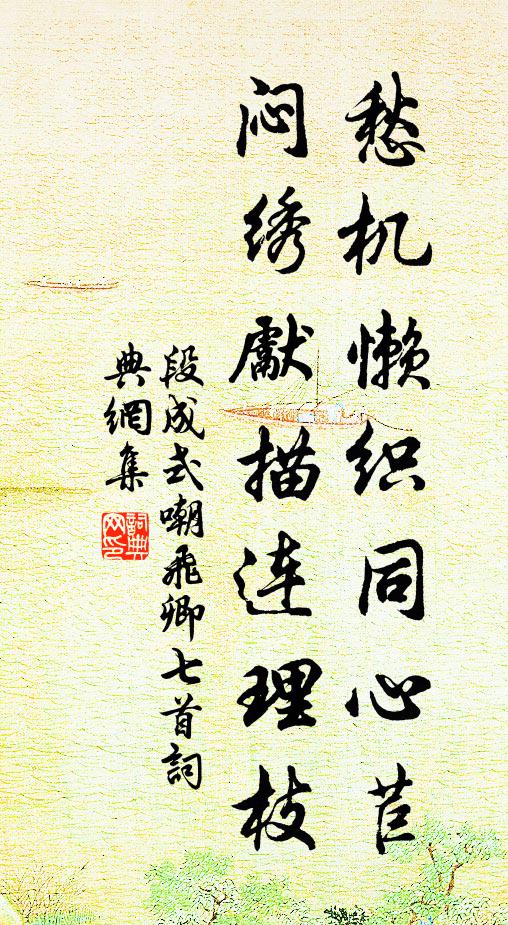 愁机懒织同心苣
闷绣獻描连理枝
段成式嘲飛卿七首詞
典網集
詞典
网印